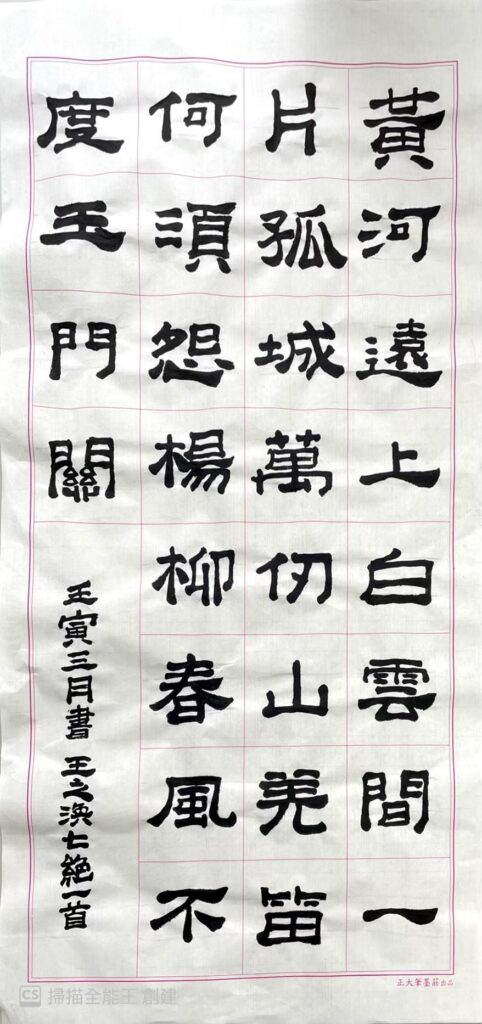 黃河遠上白雲間一
片孤城萬仞山羌笛
何須怨楊柳春風不
度玉門關
壬寅三月書 王之渙七絕一首
正大筆墨莊出品
CS 掃描全能王 創建